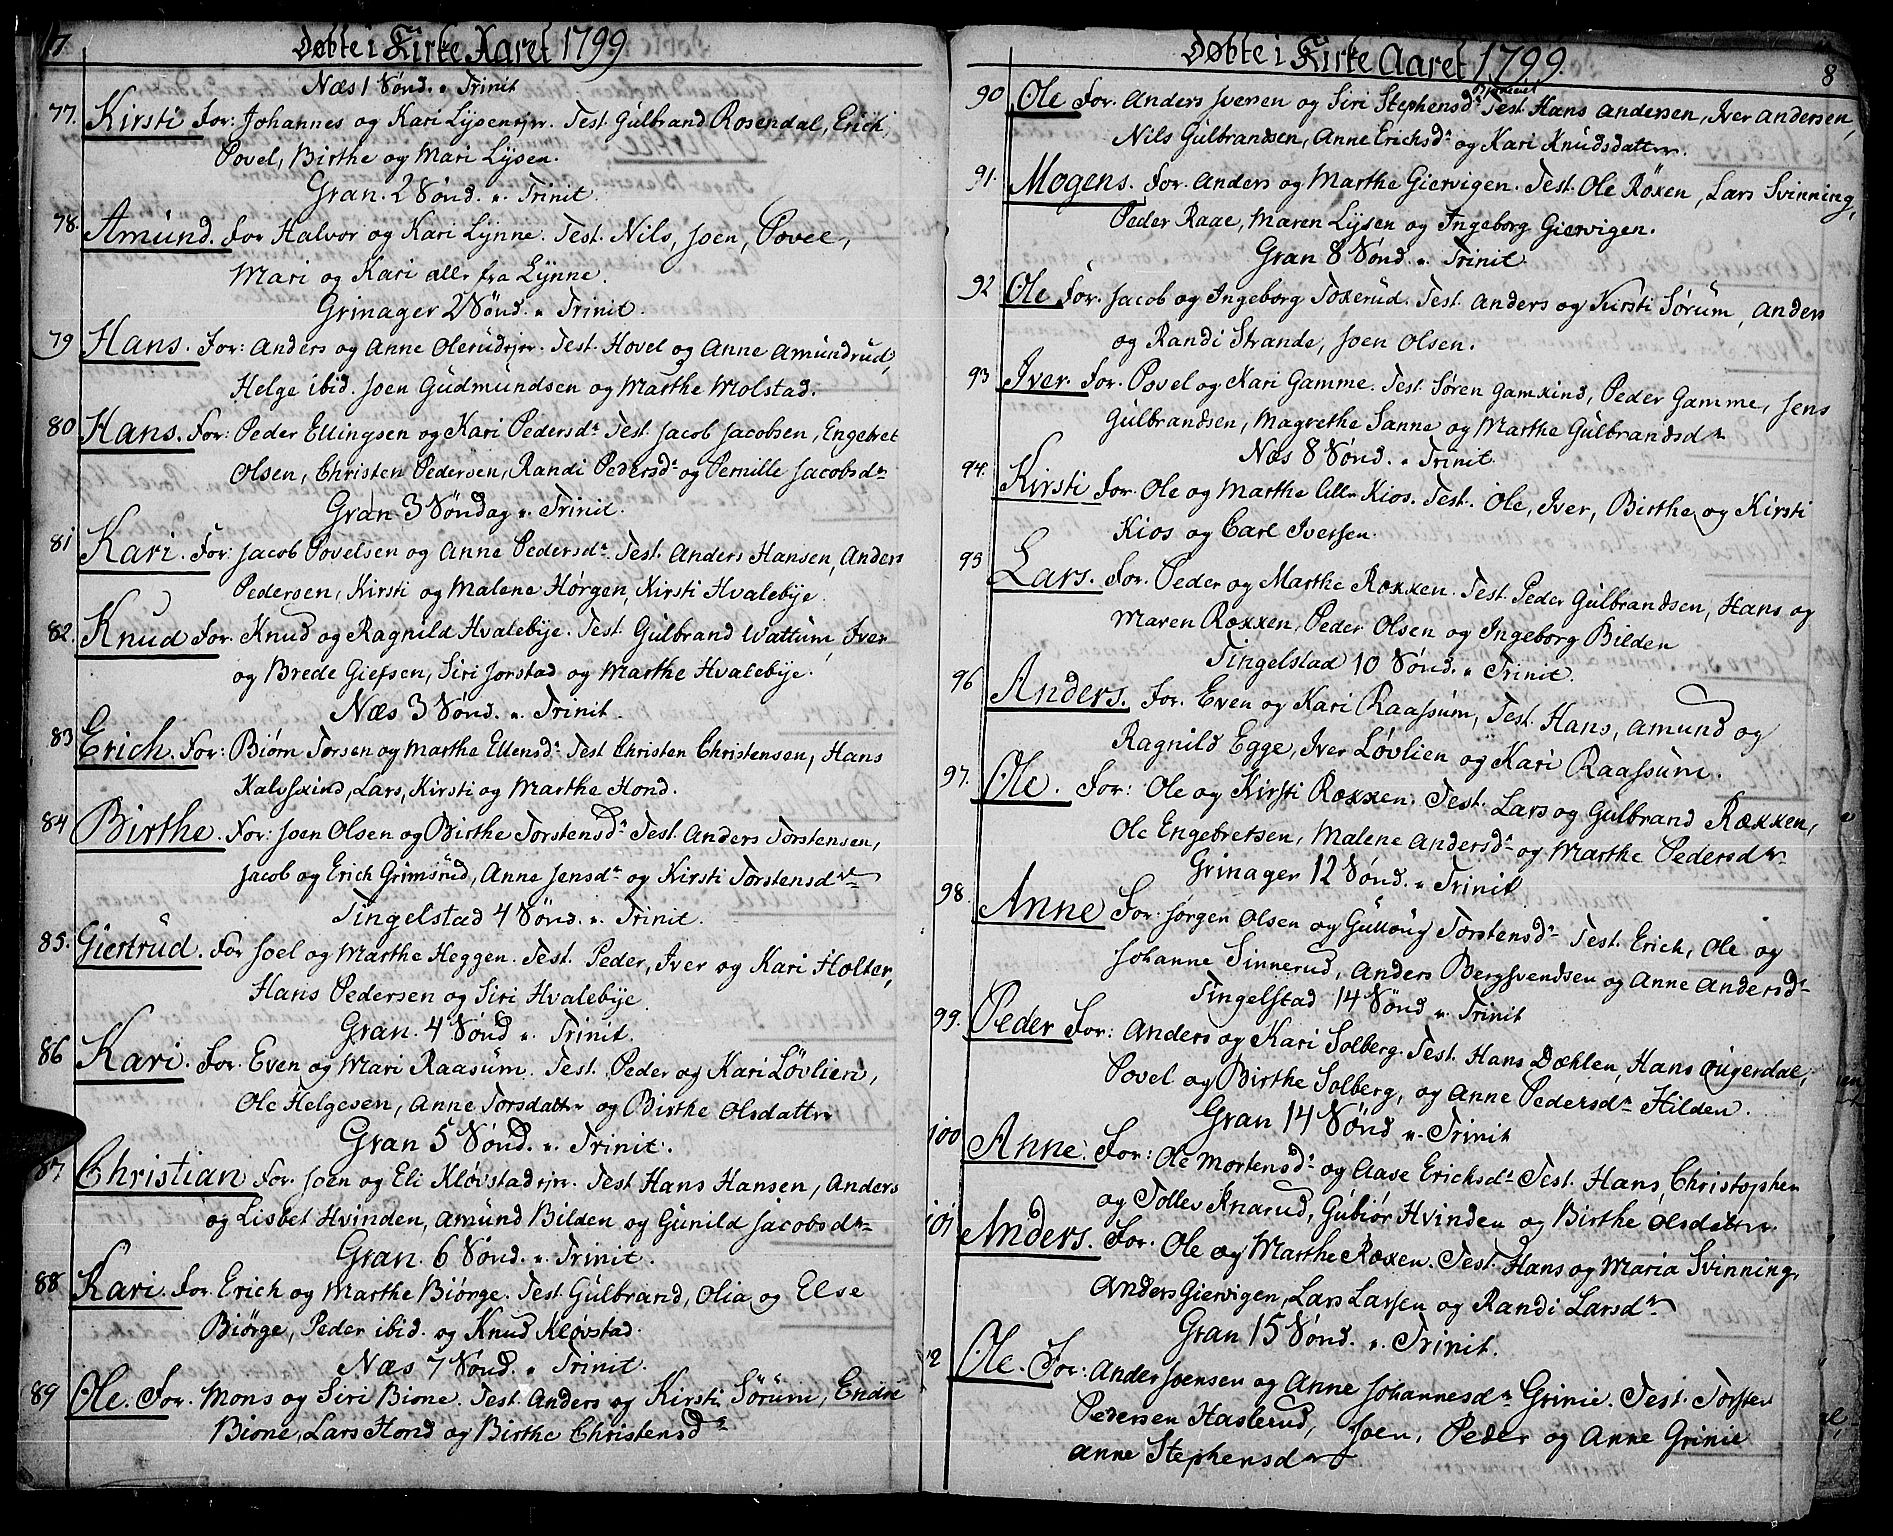 7
Døbte i Kirke Aaret 1799
Næs 1 Sønd. " Trinit
77. Kirsti For: Johannes og Kari Lysenejer. Test. Gulbrand Rosendal, Erich,
Povel, Birthe og Mari Lysen.
Gran. 2 Sønd. " Trinit.
78. Amund. For Halvor og Kari Lynne. Test. Nils, Joen, Povel,
Mari og Kari alle fra Lynne.
Grinager 2 Sønd. " Trinit.
79 Hans. For: Anders og Anne Olerudejer. Test. Hovel og Anne Amundrud,
Helge ibid. Joen Gudmundsen og Marthe Molstad.
80 Hans. For: Peder Ellingsen og Kari Pedersdr. Test. Jacob Jacobsen, Engebret
Olsen, Christen Pedersen, Randi Pedersdr. og Pernille Jacobsdr.
Gran 3 Søndag " Trinit.
81 Kari. For: Jacob Povelsen og Anne Pedersdr. Test. Anders Hansen, Anders
Pedersen, Kirsti og Malene Hørgen, Kirsti Hvalebye.
82. Knud For. Knud og Ragnild Hvalebye. Test. Gulbrand Wattum, Iver
og Brede Giefsen, Siri Jorstad og Marthe Hvalebye.
Næs 3 Sønd. " Trinit.
83 Erich. For: Biørn Torsen og Marthe Ellensdr. Test Christen Christensen, Hans
Kalvsxind, Lars, Kirsti og Marthe Hond.
84 Birthe. For: Joen Olsen og Birthe Torstensdr. Test. Anders Torstensen,
Jacob og Erich Grimsrud, Anne Jensdr. og Kirsti Torstensdr.
Tingelstad 4 Sønd. " Trinit.
85. Giertrud. For Joel og Marthe Heggen. Test. Peder, Iver og Kari Holter,
Hans Pedersen og Siri Hvalebye.
Gran. 4 Sønd " Trinit.
86 Kari. For. Even og Mari Raasum. Test. Peder og Kari Løvlien,
Ole Helgesen, Anne Torsdatter og Birthe Olsdatter
Gran 5 Sønd. " Trinit.
87 Christian For. Joen og Eli Kløvstadejer. Test Hans Hansen, Anders
og Lisbet Hvinden, Amund Bilden og Gunild Jacobsdr.
Gran. 6 Sønd. " Trinit.
88 Kari. For Erich og Marthe Biørge. Test Gulbrand, Olia og Else
Biørge, Peder ibid. og Knud Kløvstad.
Næs 7 Sønd. " Trinit.
89 Ole. For. Mons og Siri Bione. Test Anders og Kirsti Sørum, Endre
Bione, Lars Hond og Birthe Christensdr.
8
Døbte i Kirke Aaret 1799.
90 Ole For. Anders Iversen og Siri Stephensdr. Test. Hans Andersen, Iver Andersen,
Nils Gulbrandsen, Anne Erichsdr. og Kari Knudsdatter.
91. Mogens. For. Anders og Marthe Giervigen. Test. Ole Røxen, Lars Svinning,
Peder Raae, Maren Lysen og Ingeborg Giervigen.
Gran 8 Sønd. " Trinit
92 Ole For. Jacob og Ingeborg Toxerud. Test. Anders og Kirsti Sørum, Anders
og Randi Strande, Joen Olsen.
93 Iver. For. Povel og Kari Gamme. Test. Søren Gamxind, Peder Gamme, Jens
Gulbrandsen, Magrethe Sanne og Marthe Gulbrandsdr.
Næs 8 Sønd. " Trinit.
94. Kirsti For. Ole og Marthe Kios. Test. Ole, Iver, Birthe og Kirsti
Kios og Carl Iversen.
95 Lars. For. Peder og Marthe Roxxen. Test. Peder Gulbrandsen, Hans og
Maren Roxxen, Peder Olsen og Ingeborg Bilden
Tingelstad 10 Sønd. " Trinit.
96 Anders. For. Even og Kari Raassum, Test. Hans, Amund og
Ragnild Egge, Iver Løvlien og Kari Raassum.
97. Ole. For: Ole og Kirsti Roxxen. Test. Lars og Gulbrand Ræxxen,
Ole Engebretsen, Malene Andersdr. og Marthe Pedersdr.
Grinager 12 Sønd. " Trinit
98. Anne For. Jørgen Olsen og Torstensdr. Test. Erich, Ole og
Johanne Sinnerud, Anders Bergsvendsen og Anne Andersdr.
Tingelstad 14 Sønd " Trinit
99. Peder For: Anders og Kari Solberg. Test. Hans Dæhlen, Hans Øigerdal,
Povel og Birthe Solberg, og Anne Pedersdr. Hilden.
Gran 14 Sønd " Trinit
100 Anne. For: Ole Mortensd. og Aase Ericksdr. Test. Hans, Christopher
og Tollev Knarud, Gubiør Hvinden og Birthe Olsdatter.
101 Anders. For. Ole og Marthe Ræxen. Test. Hans og Maria Svinning,
Anders Giervigen, Lars Larsen og Randi Larsdr.
Gran 15 Sønd. " Trinit.
2 Ole. For: Ander Joensen og Anne Johannesdr. Grinie. Test. Torsten
Pedersen Haslerud, Joen, Peder og Anne Grinie
Anne Stephensdr.